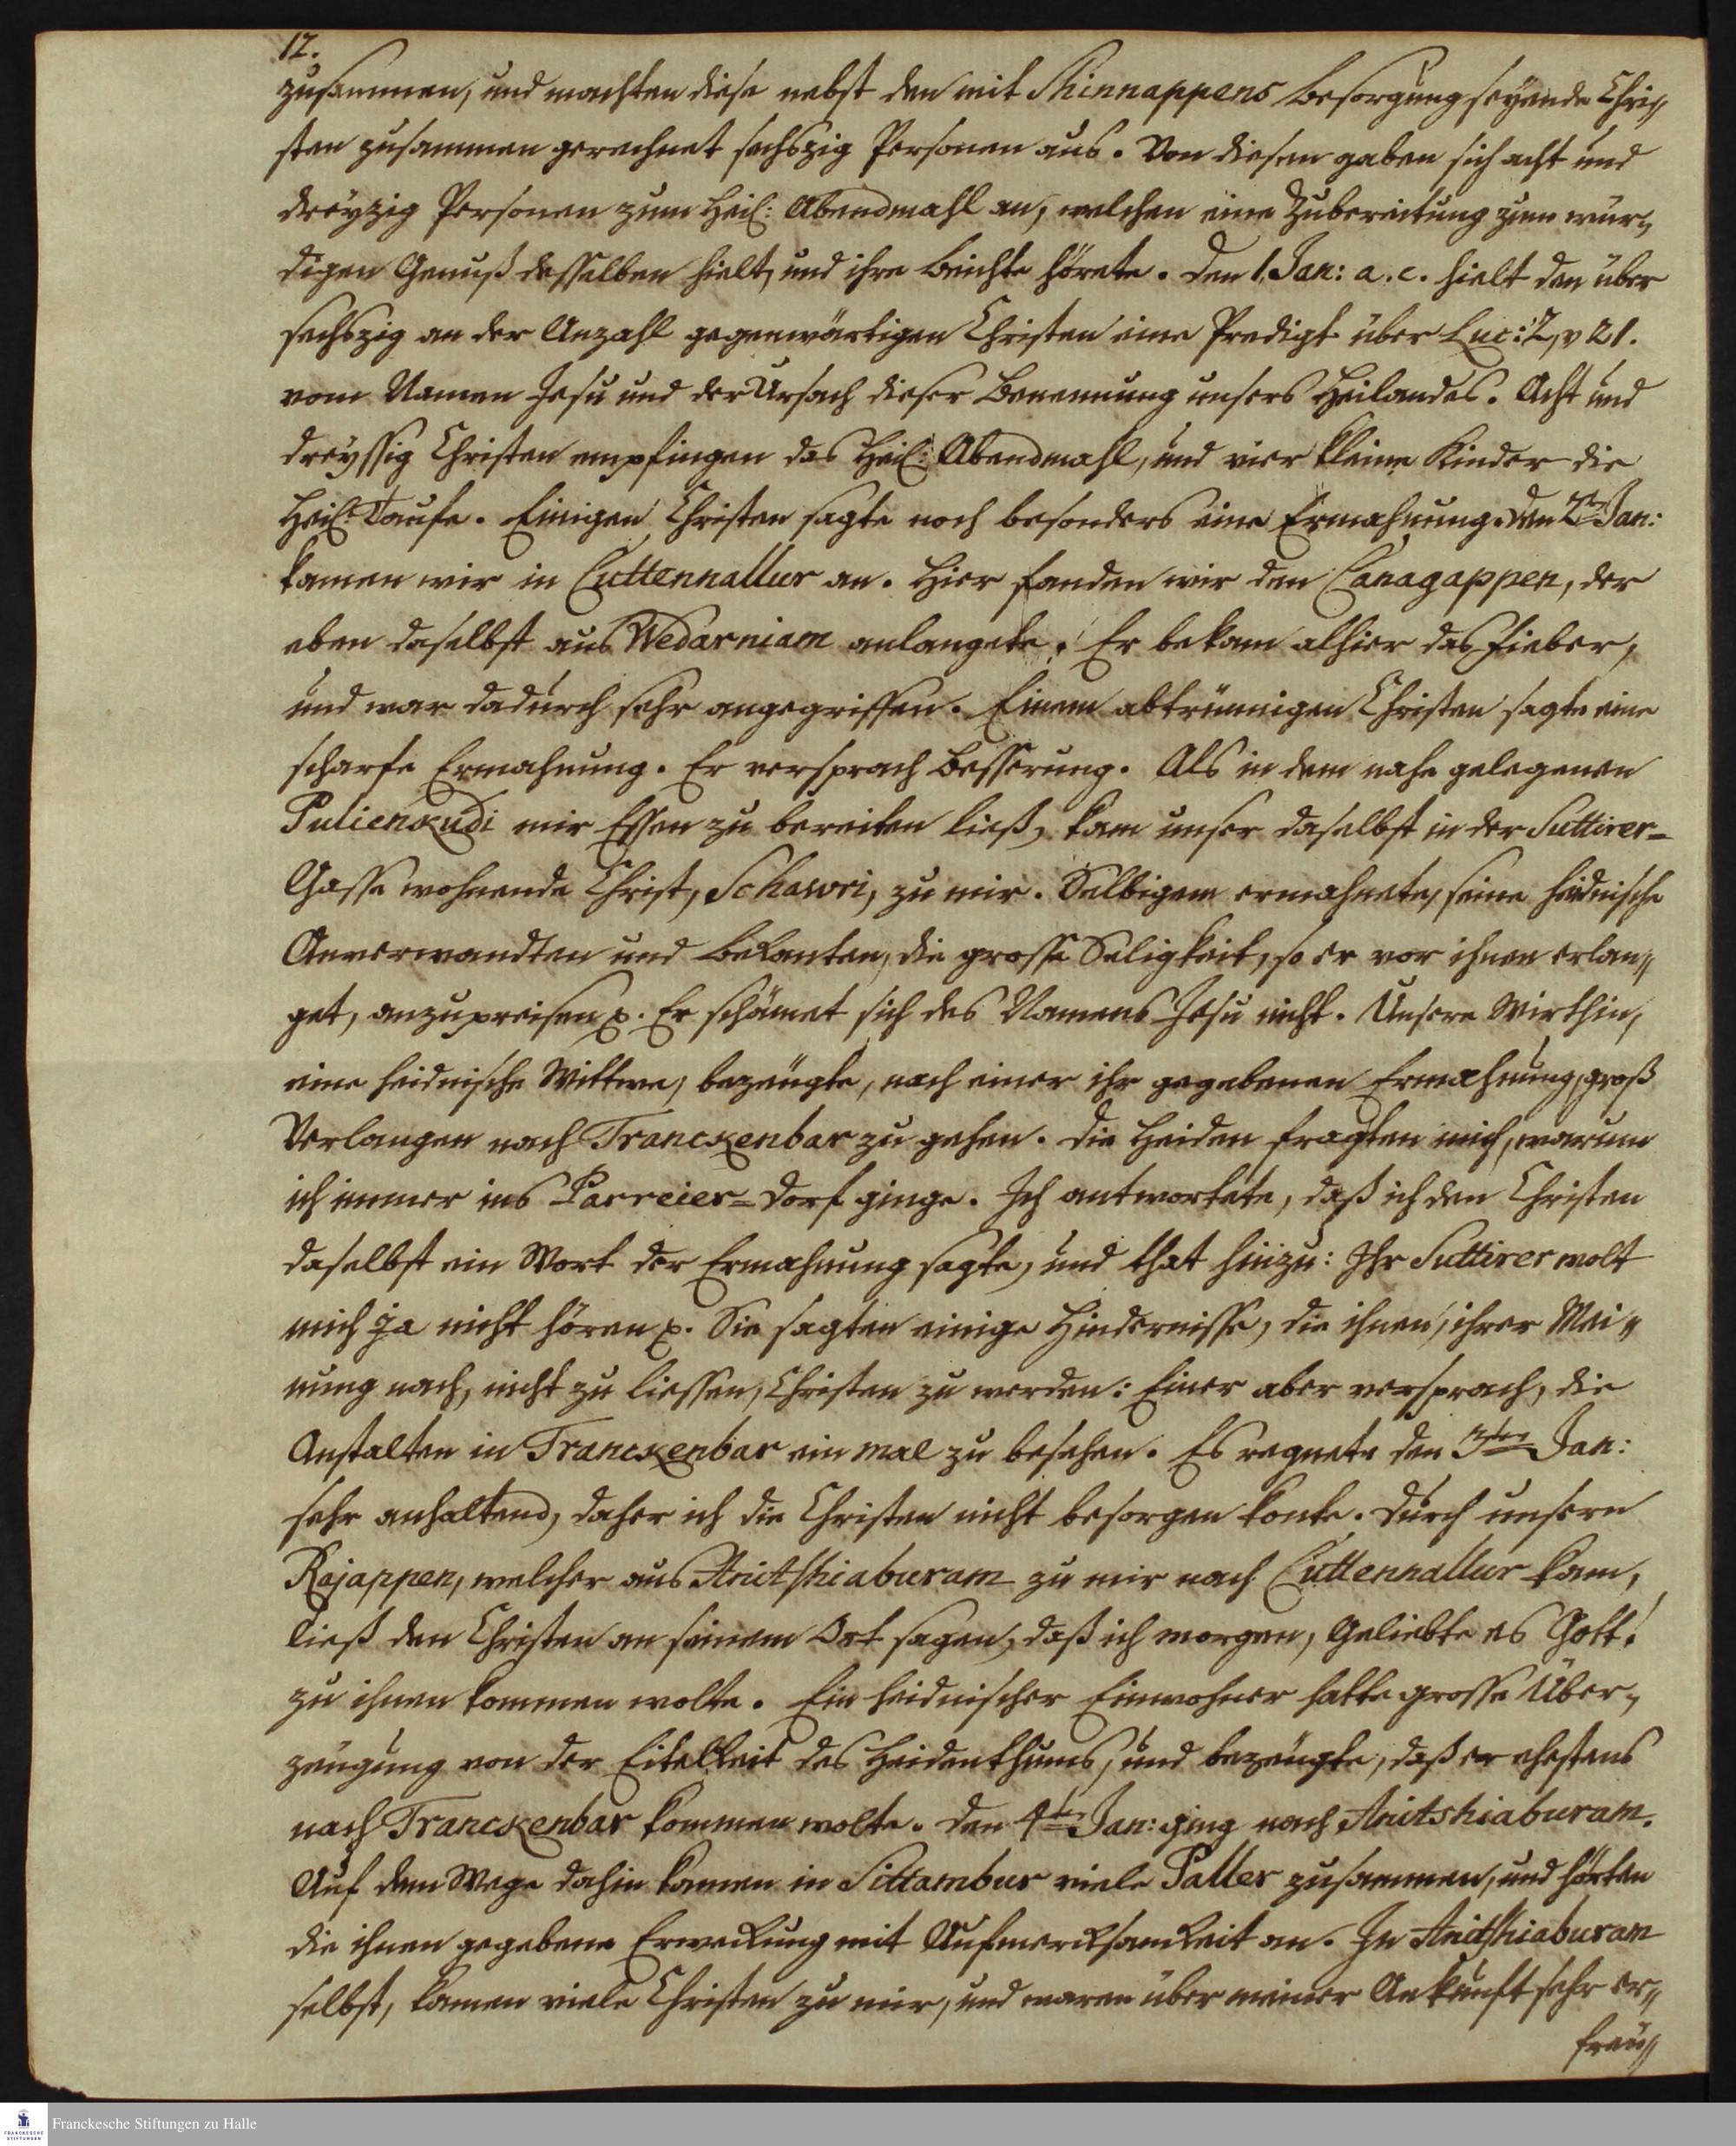 12.
zusammen, und machten diese nebst den mit Shinnappens Besorgung seyende Chri„
sten zusammen gerechnet sechszig Personen aus. Von diesen gaben sich acht und
dreyzig Personen zum Heil: Abendmahl an, welchen eine Zubereitung zum wür„
digen Genuß desselben hielt, und ihre Beichte hörete. Den 1. Jan: a. c. hielt den über
sechszig an der Anzahl gegenwärtigen Christen eine Predigt über Luc: 2, v 21.
vom Namen Jesu und der Ursach dieser Benennung unsers Heilandes. Acht und
dreyssig Christen empfingen das Heil: Abendmahl, und vier kleine Kinder die
Heil: Taufe. Einigen Christen sagte noch besonders eine Ermahnung. Den 2ten Jan:
kamen wir in Cuttennallur an. Hier fanden wir den Canagappen, der
eben daselbst aus Wedarniam anlangete. Er bekam alhier das Fieber,
und war dadurch sehr angegriffen. Einem abtrünnigen Christen sagte eine
scharfe Ermahnung. Er versprach Besserung. Als in dem nahe gelegenen
Pulienkudi mir Essen zu bereiten ließ, kam unser daselbst in der Suttirer-
Gasse wohnende Christ, Schawri, zu mir. Selbigem ermahnete, seine heidnische
Anverwandten und Bekanten, die grosse Seligkeit, so er vor ihnen erlan„
get, anzupreisen p. Er schämet sich des Namens Jesu nicht. Unsere Wirthin,
eine heidnische Wittwe, bezeugte, nach einer ihr gegebenen Ermahnung, groß
Verlangen nach Tranckenbar zu gehen. Die Heiden fragten mich, warum
ich immer ins Parreier-Dorf ginge. Ich antwortete, daß ich den Christen
daselbst ein Wort der Ermahnung sagte, und that hinzu: Ihr Suttirer wolt
mich ja nicht hören p. Sie sagten einige Hindernisse, die ihnen, ihrer Mei„
nung nach, nicht zu liessen, Christen zu werden: Einer aber versprach, die
Anstalten in Tranckenbar ein mal zu besehen. Es regnete den 3ten Jan:
sehr anhaltend, daher ich die Christen nicht besorgen konte. Durch unsern
Rajappen, welcher aus Anitshiaburam zu mir nach Cuttennallur kam,
ließ den Christen an seinem Ort sagen, daß ich morgen, geliebte es Gott!
zu ihnen kommen wolte. Ein heidnischer Einwohner hatte grosse Über„
zeugung von der Eitelkeit des Heidenthums, und bezeugte, daß er ehestens
nach Tranckenbar kommen wolte. Den 4ten Jan: ging nach Anitshiaburam.
Auf dem Wege dahin kamen in Sittambur viele Paller zusammen, und hörten
die ihnen gegebene Erweckung mit Aufmercksamkeit an. In Anitshiaburam
selbst, kamen viele Christen zu mir, und waren über meiner Ankunft sehr er„
freu„
Franckesche Stiftungen zu Halle
FRANCKESCHE
STIFTUNGEN